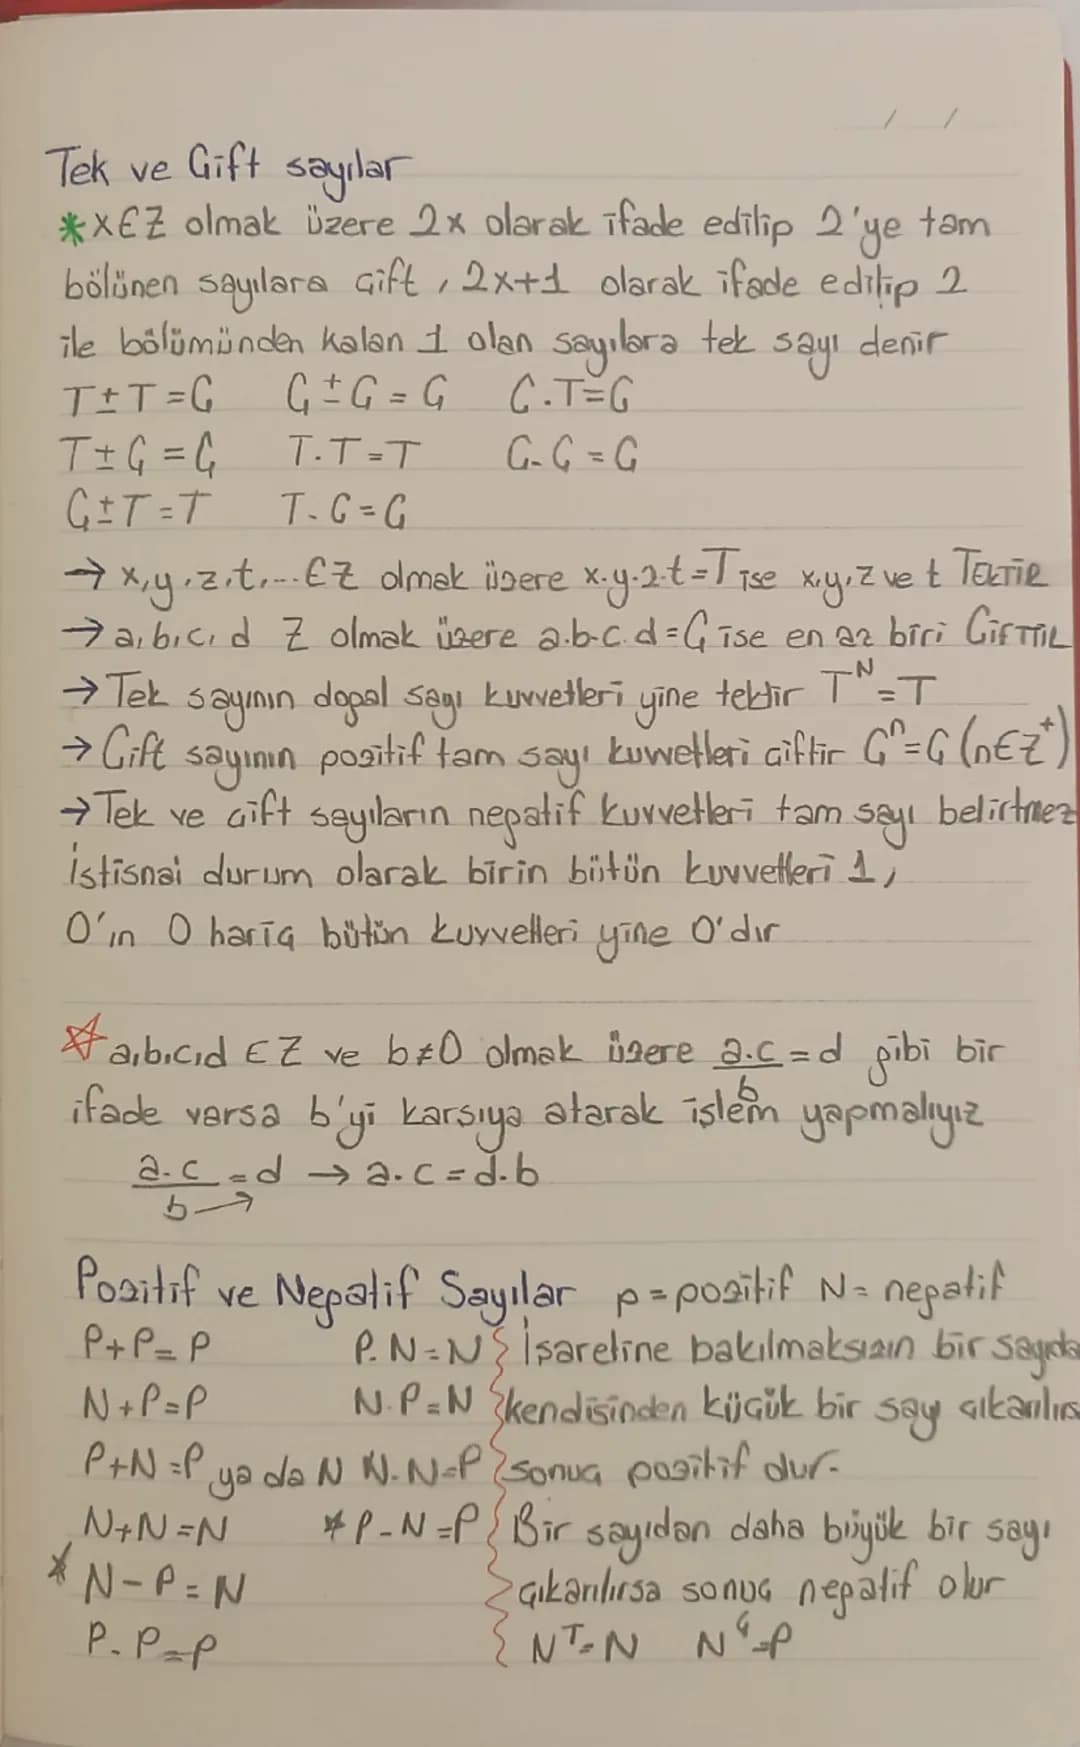 Tek ve Çift sayılar
*x∈Z olmak üzere 2x olarak ifade edilip 2'ye tam
bölünen sayılara çift, 2x+1 olarak ifade edilip 2
ile bölümünden kalan 1 olan sayılara tek sayı denir
T±T=Ç Ç±Ç=Ç Ç.T=Ç
T±Ç=Ç T.T=T Ç.Ç=Ç
Ç±T=T T.Ç=Ç
→ x,y,z,t,... ∈Z olmak üzere x.y.z.t=T ise x,y,z ve t TEKTİR
→ a,b,c,d Z olmak üzere a.b.c.d=Ç ise en az biri ÇİFTTİR
→ Tek sayının doğal sayı kuvvetleri yine tektir Tᴺ=T
→ Çift sayının pozitif tam sayı kuvvetleri çiftir Çⁿ=Ç (n∈Z⁺)
→ Tek ve çift sayıların negatif kuvvetleri tam sayı belirtmez
İstisnai durum olarak birin bütün kuvvetleri 1,
0'ın 0 hariç bütün kuvvetleri yine 0'dır
☆ a,b,c,d ∈Z ve b≠0 olmak üzere a.c/b=d gibi bir
ifade varsa b'yi karşıya atarak işlem yapmalıyız
a.c/b=d → a.c=d.b
Pozitif ve Negatif Sayılar p=pozitif N=negatif
P+P=P P.N=N İşaretine bakılmaksızın bir sayıda
N+P=P N.P=N kendisinden küçük bir sayı çıkarılırs
P+N=P ya da N N.N=P sonuç pozitif dur.
N+N=N *P-N=P Bir sayıdan daha büyük bir sayı
*N-P=N çıkarılırsa sonuç negatif olur
P.P=P Nᵀ=N N^Ç=P